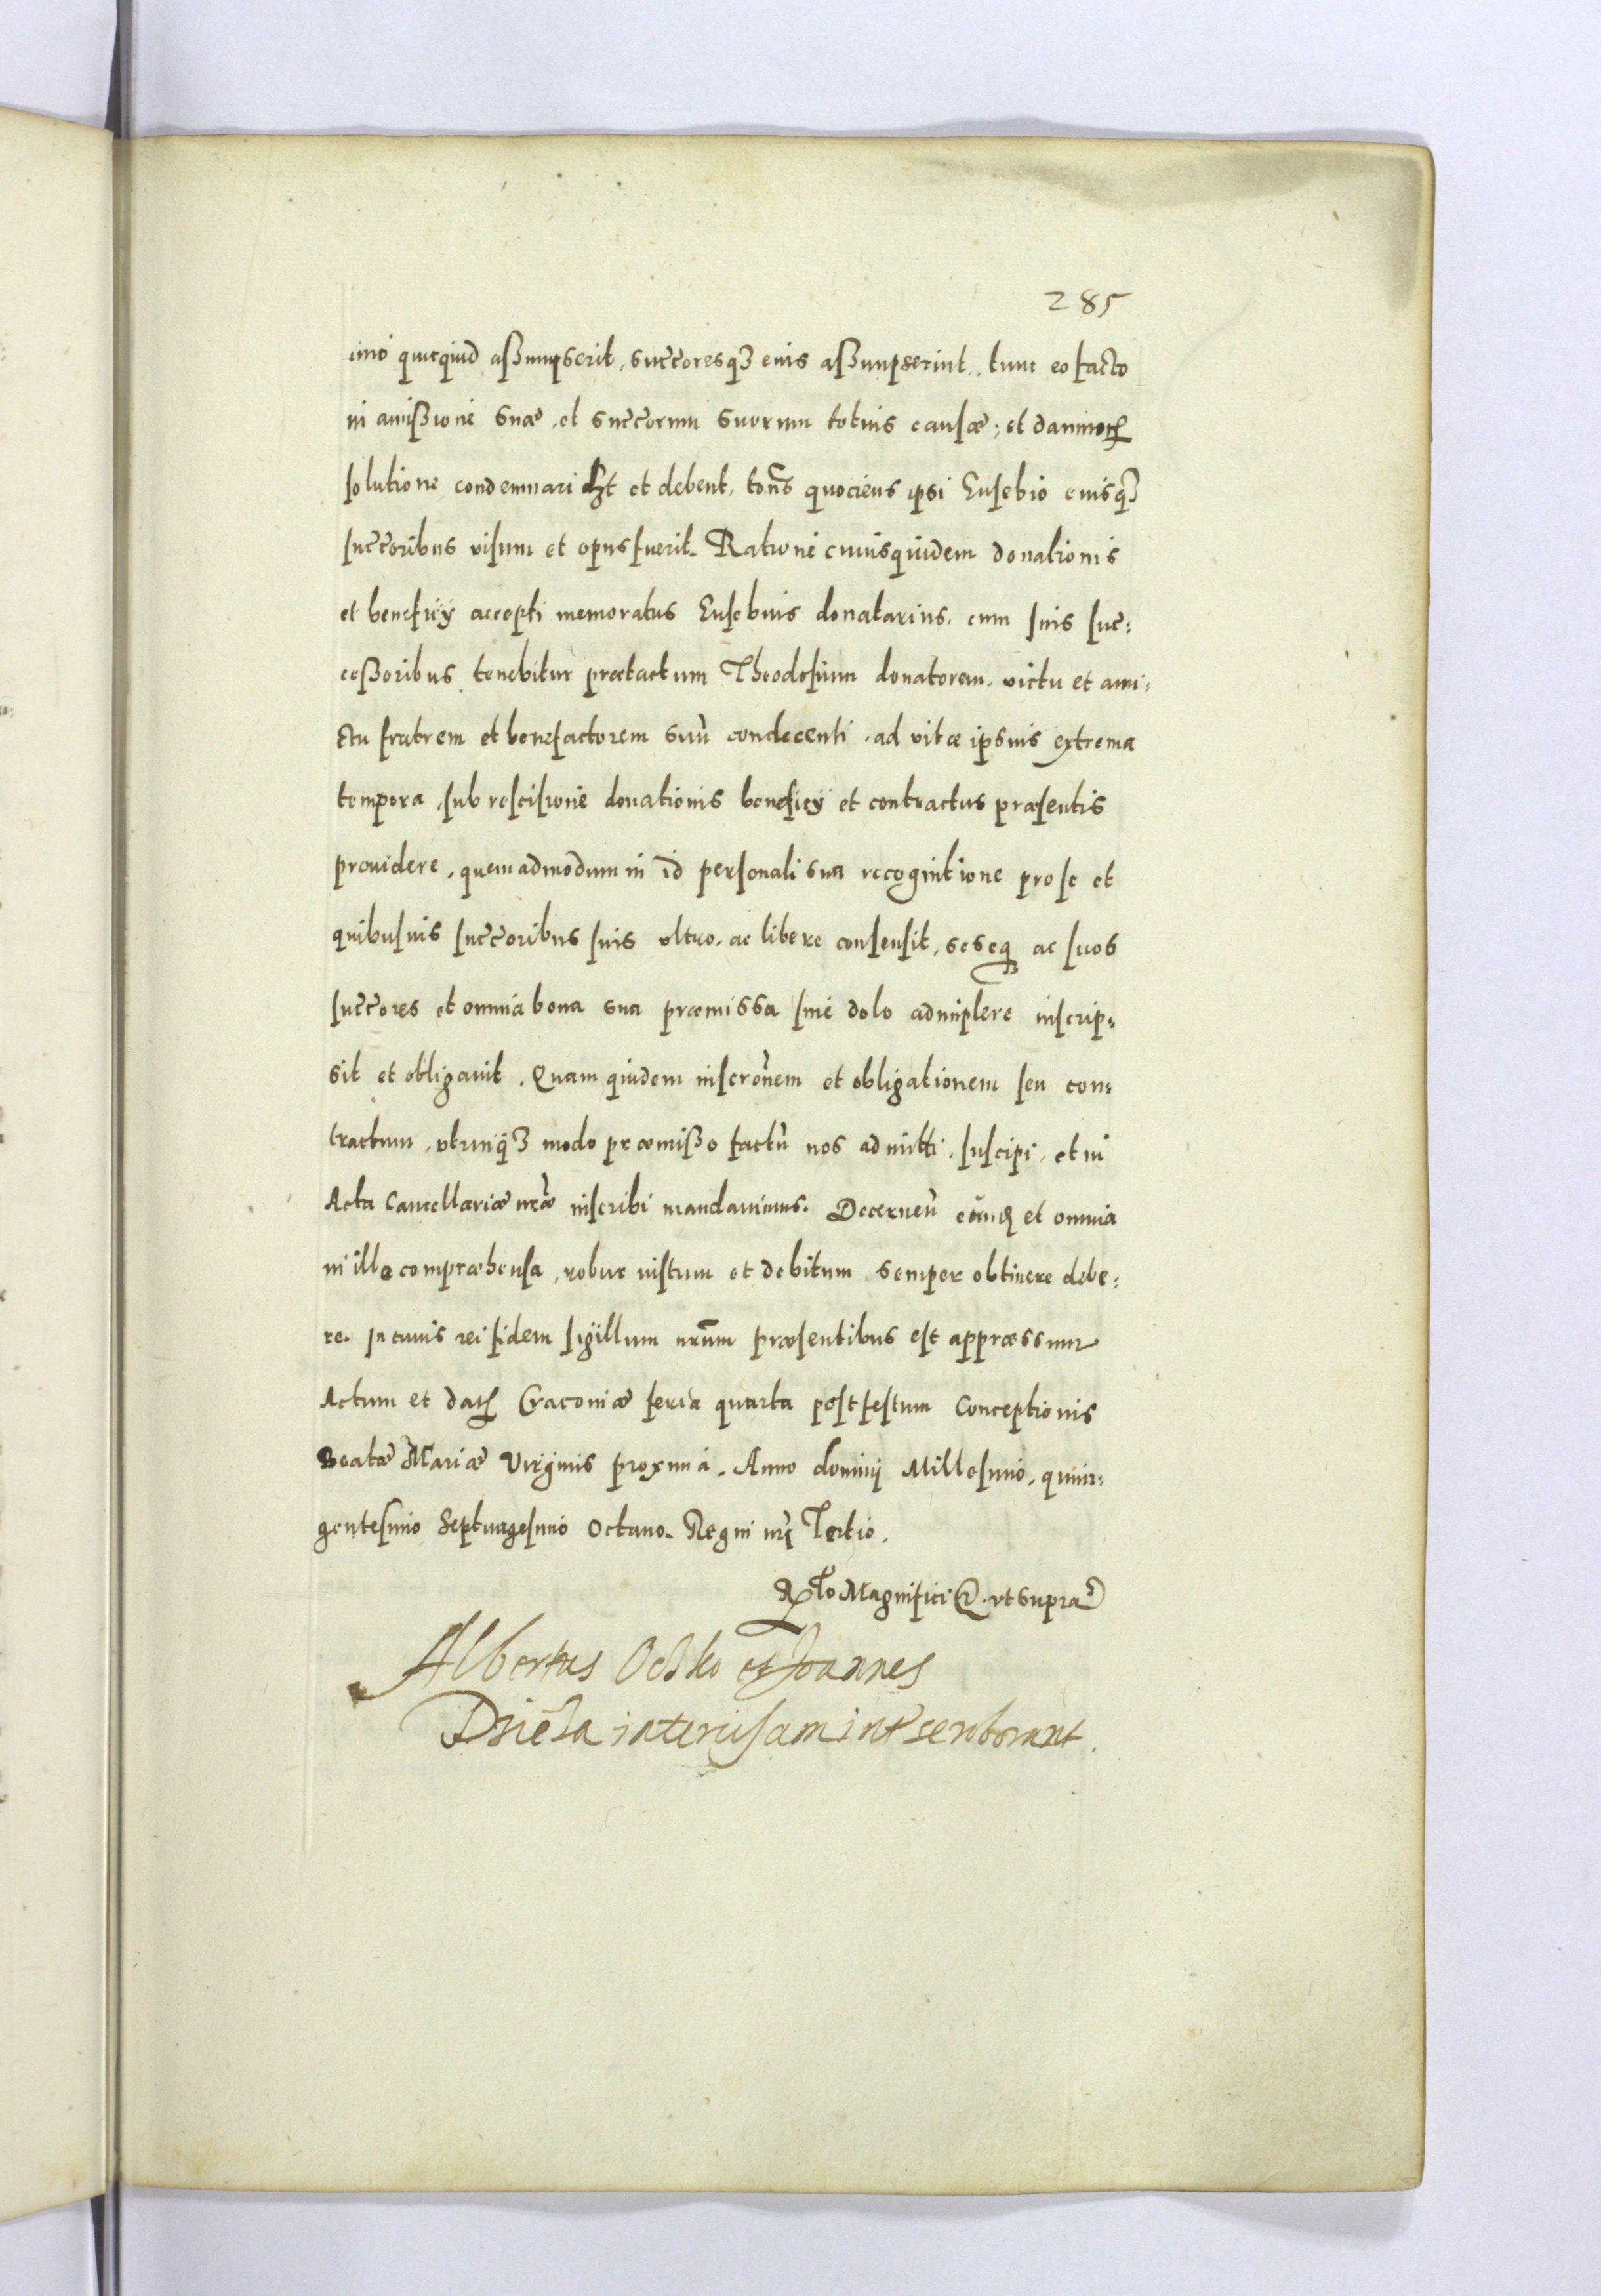 285
imo quicquid assumpserit, succoresq3 eius assumpserint, tunc eo facto
in amissione suæ, et succorum suorum totius causæ; et damnorum
solutione condemnari et debent, quociens ipsi Eusebio eiusq3
succoribus visum et opus fuerit. Ratione cuiusquidem donationis
et beneficÿ accepti memoratus Eusebius donatarius, cum suis suc:
cessoribus tenebitur prætactum Theodosium donatorem, victu et ami:
ctu fratrem et benefactorem suũ condecenti, ad vitæ ipsius extrema
tempora, sub rescisione donationis beneficÿ et contractus præsentis
prouidere, quemadmodum in id personali sua recognitione pro se et
quibusuis succoribus suis ultro, ac libere consensit, seseq3 ac suos
succores et omnia bona sua præmissa sine dolo adimplere inscrip:
sit et obligauit. Quam quidem inscronem et obligationem seu con:
tractum, vtrinq3 modo præmisso factũ nos admitti, suscipi, et in
Acta Cancellariæ nræ inscribi mandauimus. Decernen̄ eund et omnia
in illo compræhensa, robur iustum et debitum semper obtinere debe:
re. In cuius rei fidem sigillum nrum præsentibus est appræssum
Actum et dat Cracouiæ feria quarta post festum Conceptionis
Beatæ Mariæ Virginis proxima. Anno dominj Millesimo, quin:
gentesimo Septuagesimo Octauo. Regni nri Tertio.
Rlo Magnifici &. vt supra
Albertus Ocsko et Joannes